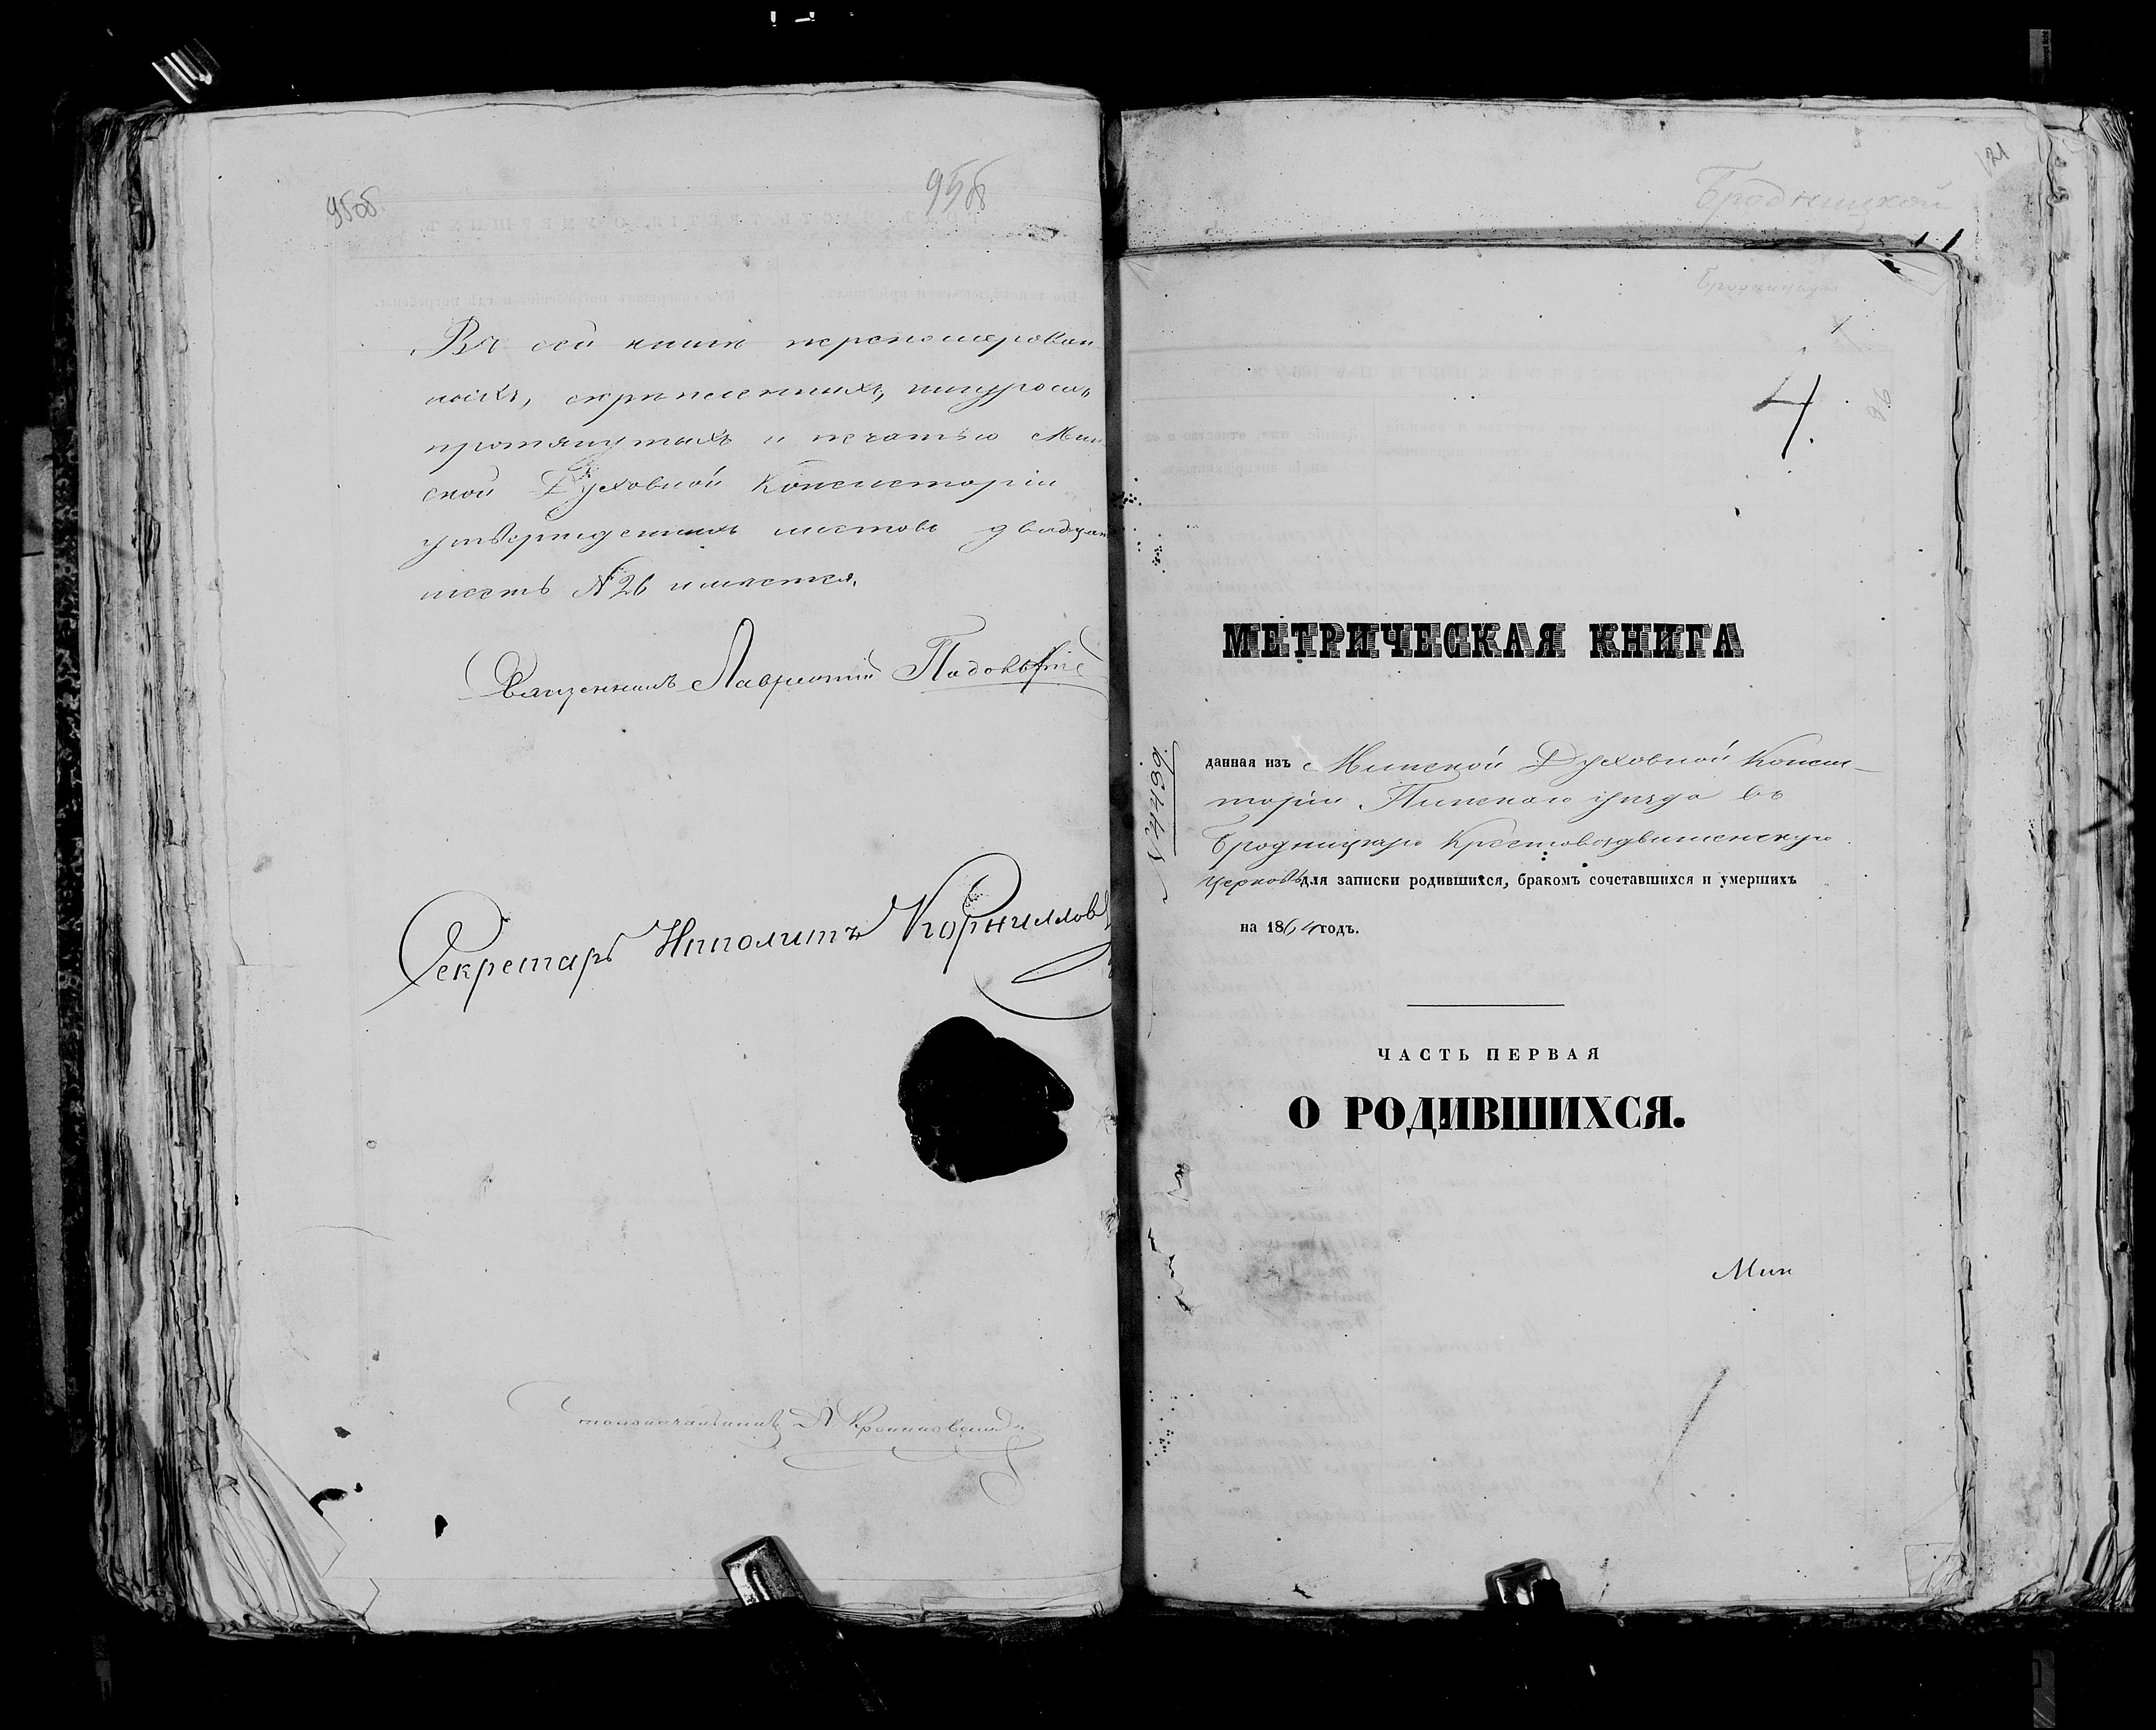 95об.
95об
Въ сей книгѣ перенумерован
ныхъ, скрѣпленныхъ, шнуромъ
протянутыхъ и печатью Мин
ской Духовной Консисторіи
утвержденныхъ листовъ двадцать
шесть № 26 имѣется.
Священникъ Лаврентій
Секретарь Ипполитъ Корниллов
Столоначальникъ
121
Бродницкой
4.
96
МЕТРИЧЕСКАЯ КНИГА
данная изъ Минской Духовной Консис-
торіи Пинскаго уѣзда въ
Бродницкую Крестовоздвиженскую
церковь для записки родившихся, бракомъ сочетавшихся и умершихъ
на 1864 годъ.
ЧАСТЬ ПЕРВАЯ
О РОДИВШИХСЯ.
Мин